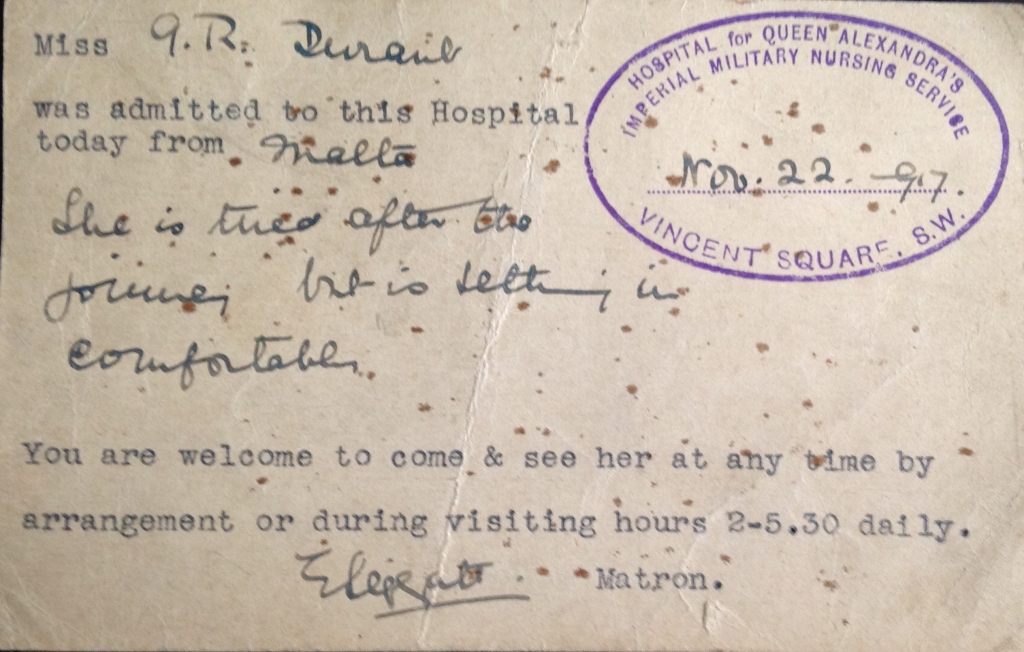 Miss G. R.
was admitted to this Hospital
today from Malta
She is tired after the
journey but is settling in
comfortably.
You are welcome to come & see her at any time by
arrangement or during visiting hours 2-5.30 daily.
Matron.
HOSPITAL for QUEEN ALEXANDRA'S
IMPERIAL MILITARY NURSING SERVICE
Nov. 22.
VINCENT SQUARE, S.W.